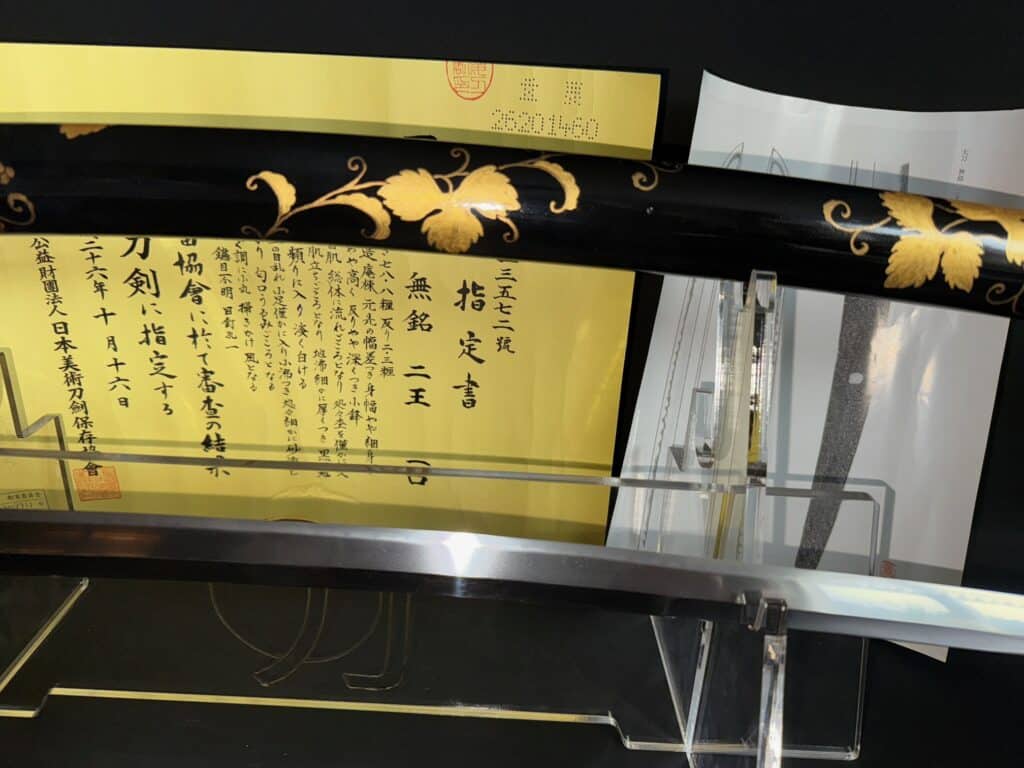 26201460
三五七二號
指定書
無銘 二王 一口
七八・八糎 反り二・三糎
造 庵棟 元先の幅差つき 身幅やや細身
やや高く 反りやや深くつき 小鋒
肌 総体に流れごころとなり 処々杢を僅かに入
肌立ちごころとなり 地沸細かに厚くつき
頻りに入り 淡く白ける
の目乱れ 小足僅かに入り 小沸つき 処々細かに砂流し
り 匂口うるみごころとなる
く調に小丸 掃きかけ風となる
鑢目不明 目釘孔一
協會に於て審査の結果
刀剣に指定する
二十六年十月十六日
公益財團法人 日本美術刀劍保存協會